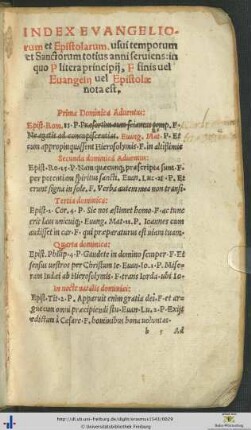 INDEX EVANGELIO-
rum et Epistolarum. usui temporum
et Sanctorum totius anni seruiens: in
quo P litera principiū, F finis uel
Euangeliï uel Epistolæ
nota est.
Prima Dominica Aduentus:
Epist. Rom. 13. P. F.
Euang. Mat. P. Et
cum appropinquassent Hierosolymis. F. in altissimis
Secunda dominica Aduentus:
Epist. Ro. 15. P. Nam quæcunq; præscripta sunt. F.
per potentiam spiritus sancti. Euan. Luc. 21. P. Et
erunt signa in sole. F. Verba autem mea non transi.
Tertia dominica:
Epist. 1. Cor. 4. P. Sic nos æstimet homo. F. ac tunc
erit laus unicuiq;. Euang. Mat. 11. P. Ioannes cum
audisset in car. F. qui præparaturus est uiam tuam.
Quarta dominica:
Epist. Philip. 4. P. Gaudete in domino semper. F. Et
sensus uestros per Christum Ie. Euan. Io. 1. P. Miserunt
Iudæi ab Hierosolymis. F. trans Iorda. ubi Io.
In nocte natalis dominici:
Epist. Tit. 2. P. Apparuit enim gratia dei. F. et arguetur
omni præcipiendi stu. Euan. Lu. 2. P. Exijt
edictum à Cæsare. F. hominibus bona voluntas.
b 5 Ad
http://dl.ub.uni-freiburg.de/diglit/erasmus1543/0029
© Universitätsbibliothek Freiburg